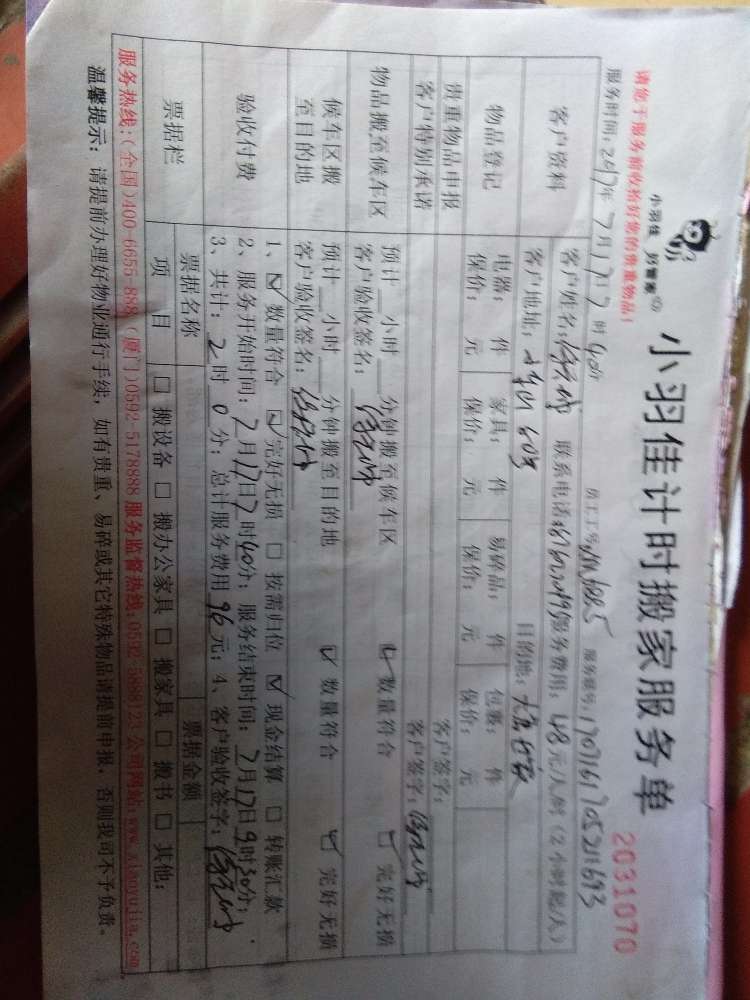 小羽佳 好管家
小羽佳计时搬家服务单
2031070
请您于服务前收拾好您的贵重物品!
服务时间:2017年7月17日7时40分 员工工号: 服务账号:
客户资料
客户姓名: 联系电话: 服务费用:48元/人时(2小时起/人)
客户地址: 目的地:
物品登记
电器: 件 家具: 件 易碎品: 件 包裹: 件
保价: 元 保价: 元 保价: 元 保价: 元
贵重物品申报 客户签字:
客户特别承诺 客户签字:
物品搬至候车区
预计__小时__分钟搬至候车区 ☑数量符合 ☑完好无损
客户验收签名:
候车区搬至目的地
预计__小时__分钟搬至目的地 ☑数量符合 ☑完好无损
客户验收签名:
验收付费
1、☑数量符合 ☑完好无损 □按需归位 ☑现金结算 □转账汇款
2、服务开始时间:7月17日7时40分;服务结束时间:7月17日9时30分;
3、共计:2时0分;总计服务费用96元;4、客户验收签字:
票据栏
票据名称 票据金额
项目 □搬设备 □搬办公家具 □搬家具 □搬书 □其他:
服务热线:(全国)400-6655-888 (厦门)0592 5178888 服务监督热线:0592-5888123 公司网站:www.xiaoyujia.com
温馨提示:请提前办理好物业通行手续,如有贵重、易碎或其它特殊物品请提前申报,否则我司不予负责。